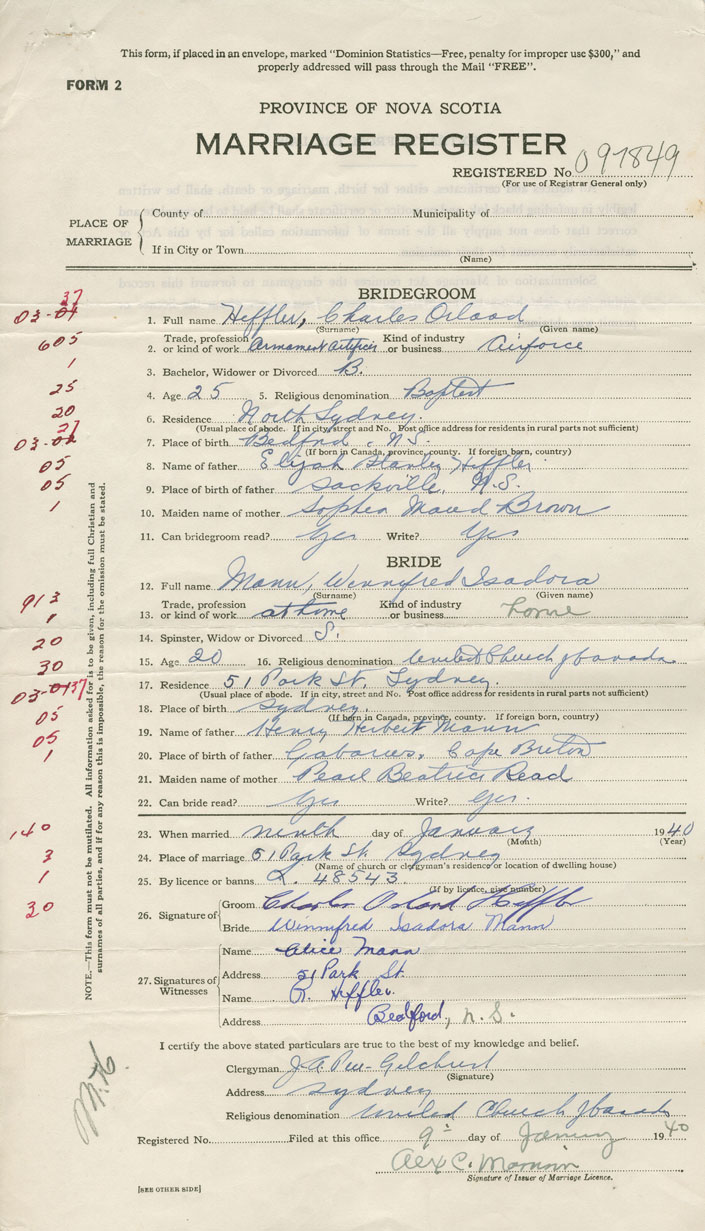 This form, if placed in an envelope, marked "Dominion Statistics—Free, penalty for improper use $300," and
properly addressed will pass through the Mail "FREE".
FORM 2
PROVINCE OF NOVA SCOTIA
MARRIAGE REGISTER
REGISTERED No. 097849
(For use of Registrar General only)
PLACE OF MARRIAGE
County of Municipality of
If in City or Town
(Name)
BRIDEGROOM
37
03-01
1. Full name Heffler, Charles Orland
(Surname) (Given name)
605
2. Trade, profession or kind of work Armament Artificer Kind of industry or business Airforce
1
3. Bachelor, Widower or Divorced B.
25
4. Age 25 5. Religious denomination Baptist
20
6. Residence North Sydney.
(Usual place of abode. If in city, street and No. Post office address for residents in rural parts not sufficient)
03-01
7. Place of birth Bedford, N.S.
(If born in Canada, province, county. If foreign born, country)
05
8. Name of father Elijah Stanley Heffler
05
9. Place of birth of father Sackville, N.S.
1
10. Maiden name of mother Sophia Maud Brown
11. Can bridegroom read? Yes Write? Yes
BRIDE
12. Full name Mann, Wennifred Isadora
(Surname) (Given name)
913
1
13. Trade, profession or kind of work at home Kind of industry or business home
20
14. Spinster, Widow or Divorced S.
30
15. Age 20 16. Religious denomination United Church of Canada
03-0137
17. Residence 51 Park St, Sydney.
(Usual place of abode. If in city, street and No. Post office address for residents in rural parts not sufficient)
05
18. Place of birth Sydney.
(If born in Canada, province, county. If foreign born, country)
05
19. Name of father Henry Herbert Mann
1
20. Place of birth of father Gabarus, Cape Breton
21. Maiden name of mother Pearl Beatrice Read
22. Can bride read? Yes Write? Yes.
140
23. When married ninth day of January 1940
(Month) (Year)
3
24. Place of marriage 51 Park St Sydney
(Name of church or clergyman's residence or location of dwelling house)
1
25. By licence or banns L. 48543
(If by licence, give number)
30
26. Signature of
Groom Charles Orland Heffler
Bride Wennifred Isadora Mann
27. Signatures of Witnesses
Name Alice Mann
Address 51 Park St.
Name R. Heffler.
Address Bedford, N.S.
NOTE.—This form must not be mutilated. All information asked for is to be given, including full Christian and
surnames of all parties, and if for any reason this is impossible, the reason for the omission must be stated.
I certify the above stated particulars are true to the best of my knowledge and belief.
Clergyman J.A. Gilchrist
(Signature)
Address Sydney
Religious denomination United Church of Canada
Registered No. Filed at this office 9th day of January 1940
Alex C.
Signature of Issuer of Marriage Licence.
[SEE OTHER SIDE]